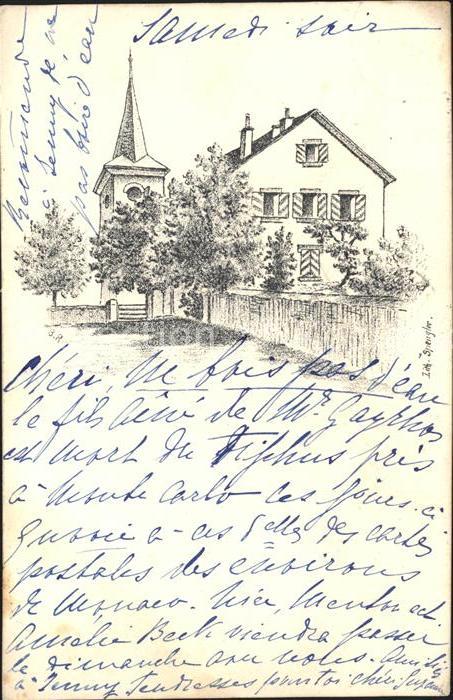 Samedi soir
Recommande
à Jenny de ne
pas boire d'eau
Lith. Spengler.
Chéri, Ne bois pas d'eau
le fils aîné de Mr.
est mort du Typhus pris
à Monte Carlo ces jours-ci
Envoie à ces Delles des cartes
postales des environs
de Monaco. Nice, Menton ect.
Amélie Beck viendra passer
le dimanche avec nous.
à Jenny Tendresses pour toi chéri